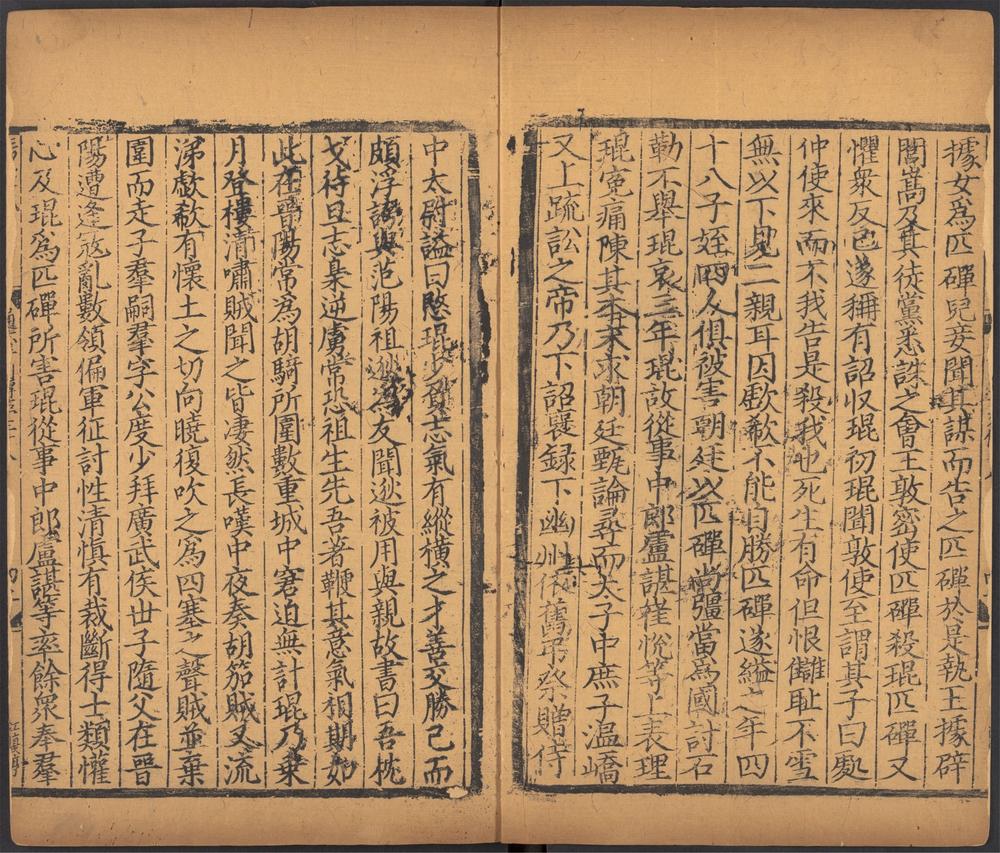 據女爲匹磾兒妾聞其謀而告之匹磾於是執王據辟
閭嵩及其徒黨悉誅之會王敦密使匹磾殺琨匹磾又
懼衆反己遂稱有詔収琨初琨聞敦使至謂其子曰處
仲使來而不我告是殺我也死生有命但恨讎恥不雪
無以下見二親耳因歔欷不能自勝匹磾遂縊之年四
十八子姪四人俱被害朝廷以匹磾尚彊當爲國討石
勒不舉琨哀三年琨故從事中郎盧諶崔悅等上表理
琨寃痛陳其本末求朝廷甄論尋而太子中庶子温嶠
又上疏訟之帝乃下詔襃録下幽州依舊弔祭贈侍
中太尉謚曰愍琨少負志氣有縱橫之才善交勝己而
頗浮誇與范陽祖逖爲友聞逖被用與親故書曰吾枕
戈待旦志梟逆虜常恐祖生先吾著鞭其意氣相期如
此在晉陽常爲胡騎所圍數重城中窘迫無計琨乃乗
月登樓清嘯賊聞之皆淒然長嘆中夜奏胡笳賊又流
涕歔欷有懷土之切向曉復吹之爲四塞之聲賊並棄
圍而走子羣嗣羣字公度少拜廣武侯世子隨父在晉
陽遭逢宼亂數領偏軍征討性清慎有裁斷得士類懽
心及琨爲匹磾所害琨從事中郎盧諶等率餘衆奉羣